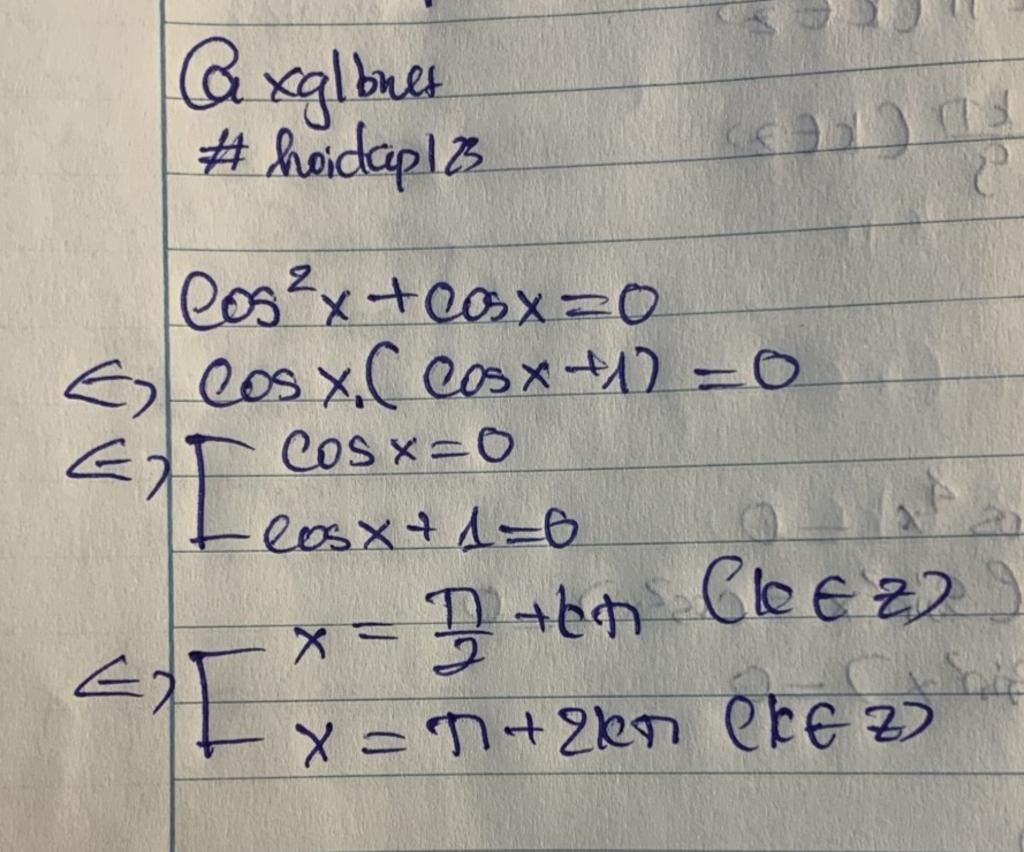 @ xglbnet
# hoidap123
cos²x + cosx = 0
<=> cosx.(cosx+1) = 0
<=> [ cosx = 0
cosx + 1 = 0
x = π/2 + kπ (k ∈ Z)
<=> [
x = π + 2kπ (k ∈ Z)